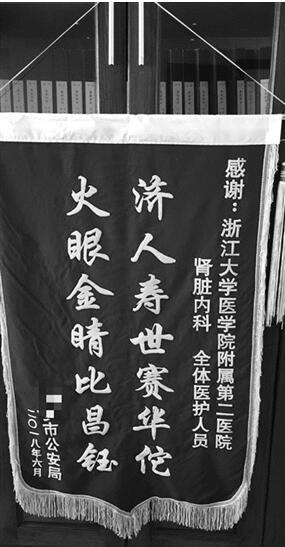 感谢：浙江大学医学院附属第二医院
肾脏内科 全体医护人员
济人寿世赛华佗
火眼金睛比昌钰
市公安局
二〇一八年六月